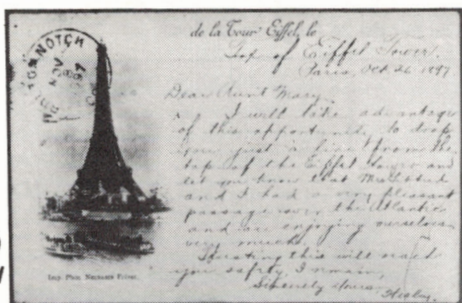 de la Tour Eiffel, le
Top of Eiffel Tower,
Paris, Oct 26 1897
Dear Aunt Mary,
I will take advantage
of this opportunity to drop
you just a line from the
top of the Eiffel Tower and
let you know that
and I had a very pleasant
passage over the Atlantic
and are enjoying ourselves
very much.
Trusting this will reach
you safely I remain,
Sincerely Yours,
NOTCH
NOV
97
Imp. Phot. Neurdein Frères